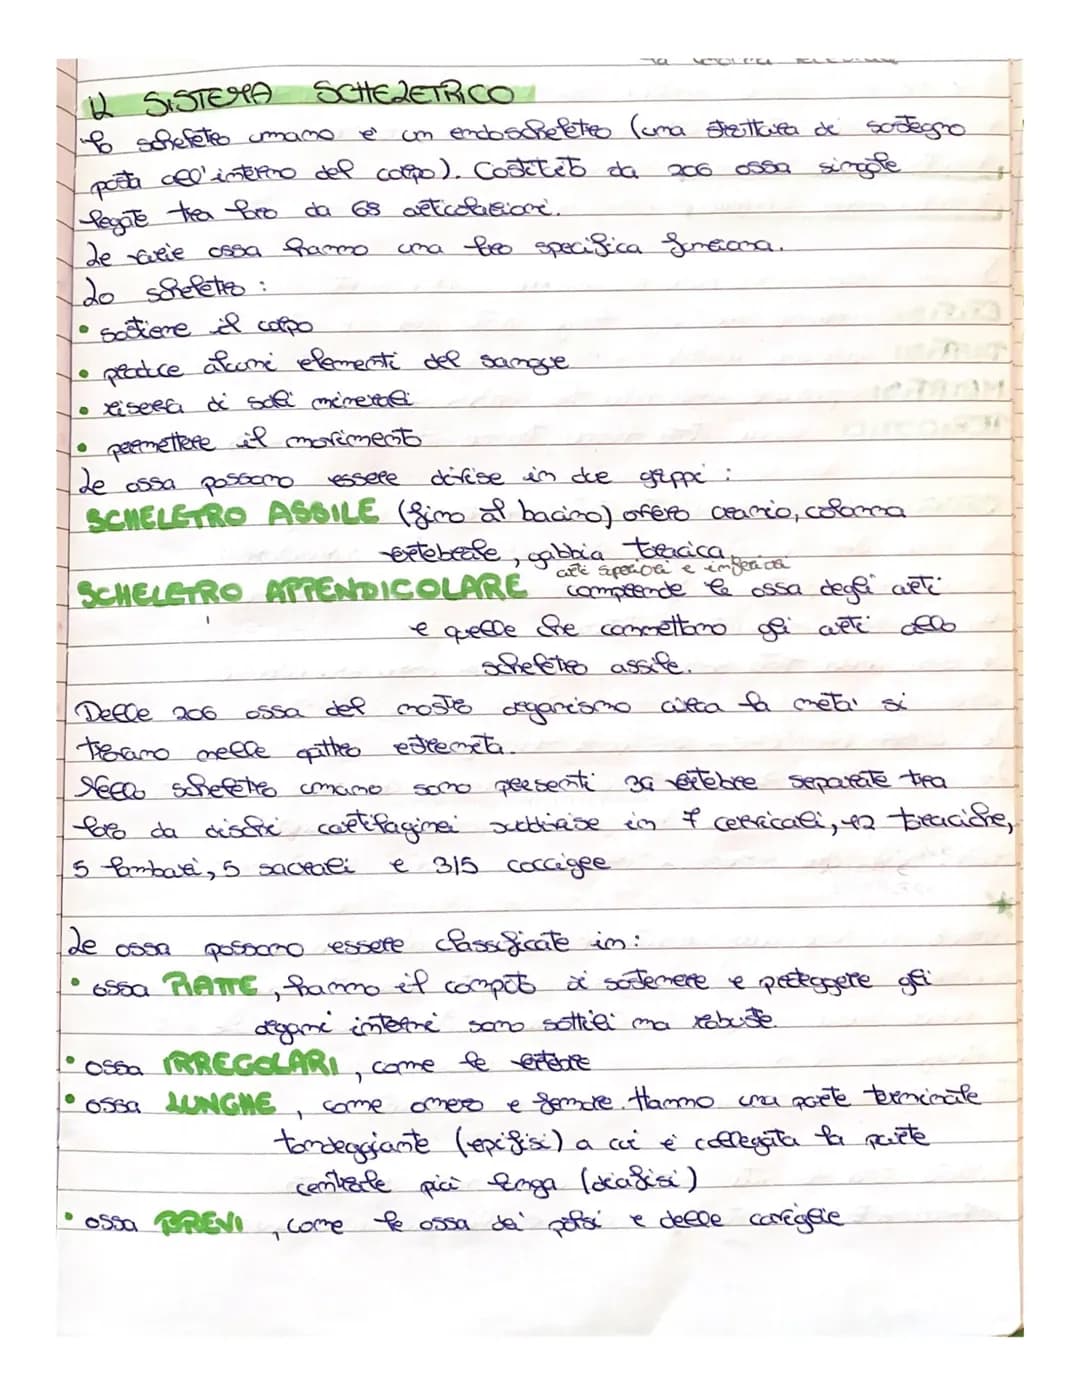 IL SISTEMA SCHELETRICO
lo scheletro umano è un endoscheletro (una struttura di sostegno
posta all'interno del corpo). Costituito da 206 ossa singole
legate tra loro da 68 articolazioni.
Le varie ossa hanno una loro specifica funziona.
Lo scheletro :
• sostiene il corpo
• produce alcuni elementi del sangue
• riserva di sali minerali
• permettere il movimento
Le ossa possono essere divise in due gruppi :
SCHELETRO ASSILE (fino al bacino) ovvero cranio, colonna
vertebrale, gabbia toracica
arti superiori e inferiori
SCHELETRO APPENDICOLARE comprende le ossa degli arti
e quelle che connettono gli arti allo
scheletro assile.
Delle 206 ossa del nostro organismo circa la metà si
trovano nelle quattro estremità.
Nello scheletro umano sono presenti 34 vertebre separate tra
loro da dischi cartilaginei suddivise in 7 cervicali, 12 toraciche,
5 lombari, 5 sacrali e 3/5 coccigee
Le ossa possono essere classificate in:
• ossa PIATTE, hanno il compito di sostenere e proteggere gli
organi interni sono sottili ma robuste.
• ossa IRREGOLARI, come le vertebre
• ossa LUNGHE, come omero e femore. Hanno una parte terminale
tondeggiante (epifisi) a cui è collegata la parte
centrale più lunga (diafisi)
• ossa BREVI, come le ossa dei polsi e delle caviglie